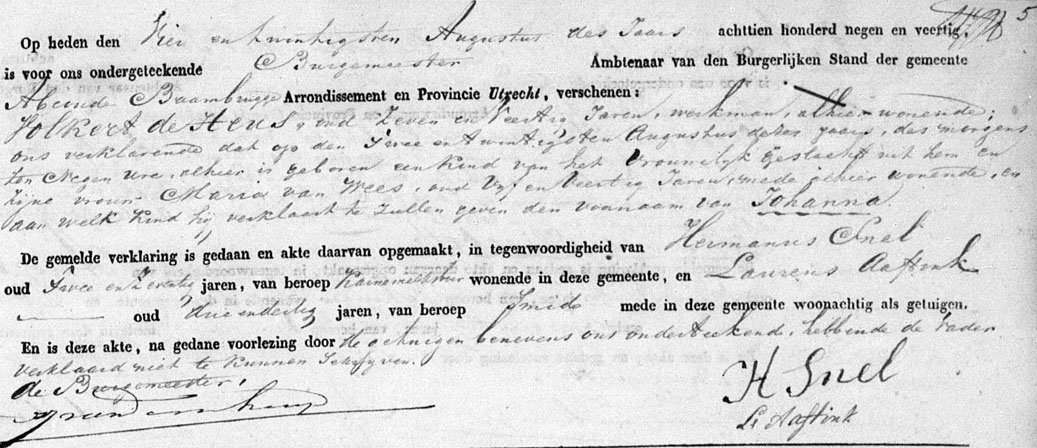 5
Op heden den Vier en twintigsten Augustus des Jaars achttien honderd negen en veertig,
is voor ons ondergeteekende Burgemeester Ambtenaar van den Burgerlijken Stand der gemeente
Abcoude Baambrugge Arrondissement en Provincie Utrecht, verschenen:
Volkert de Heus, oud Zeven en Veertig Jaren, werkman, alhier wonende;
ons verklarende dat op den Twee en twintigsten Augustus dezes jaars, des morgens
ten Negen ure, alhier is geboren een Kind van het Vrouwelijk geslacht uit hem en
zijne vrouw Maria van Wees, oud Vyf en Veertig Jaren, mede alhier wonende, en
aan welk Kind hij verklaart te zullen geven den voornaam van Johanna.
De gemelde verklaring is gedaan en akte daarvan opgemaakt, in tegenwoordigheid van Hermanus Snel
oud Twee en Zeventig jaren, van beroep wonende in deze gemeente, en Laurens Aaftink
oud Drie en dertig jaren, van beroep Smid mede in deze gemeente woonachtig als getuigen.
En is deze akte, na gedane voorlezing door de getuigen benevens ons onderteekend, hebbende de Vader
verklaard niet te kunnen Schryven.
de Burgemeester,
H Snel
Ls Aaftink